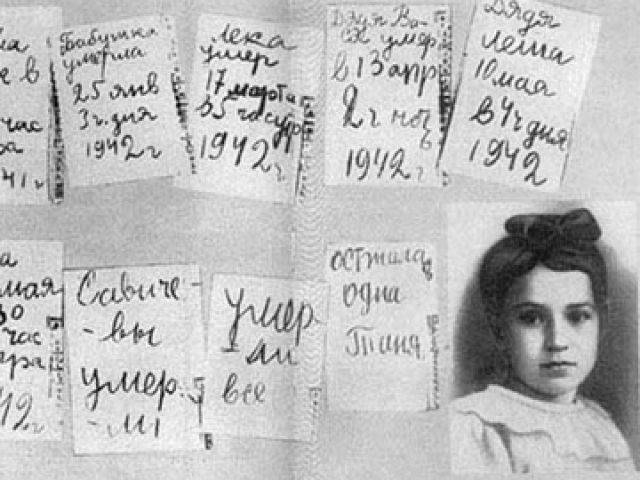 е в
час
ра
41 г
Бабушка
умерла
25 янв
3 ч. дня
1942 г
Лека
умер
17 марта
в 5 час утр
1942 г
Дядя Ва-
ся умер
в 13 апр
2 ч ночь
1942 г
Дядя
Леша
10 мая
в 4 ч дня
1942
а
мая
30
час
тра
42 г
Савиче-
-вы
умер-
-ли
умер
-ли
все
осталась
одна
Таня